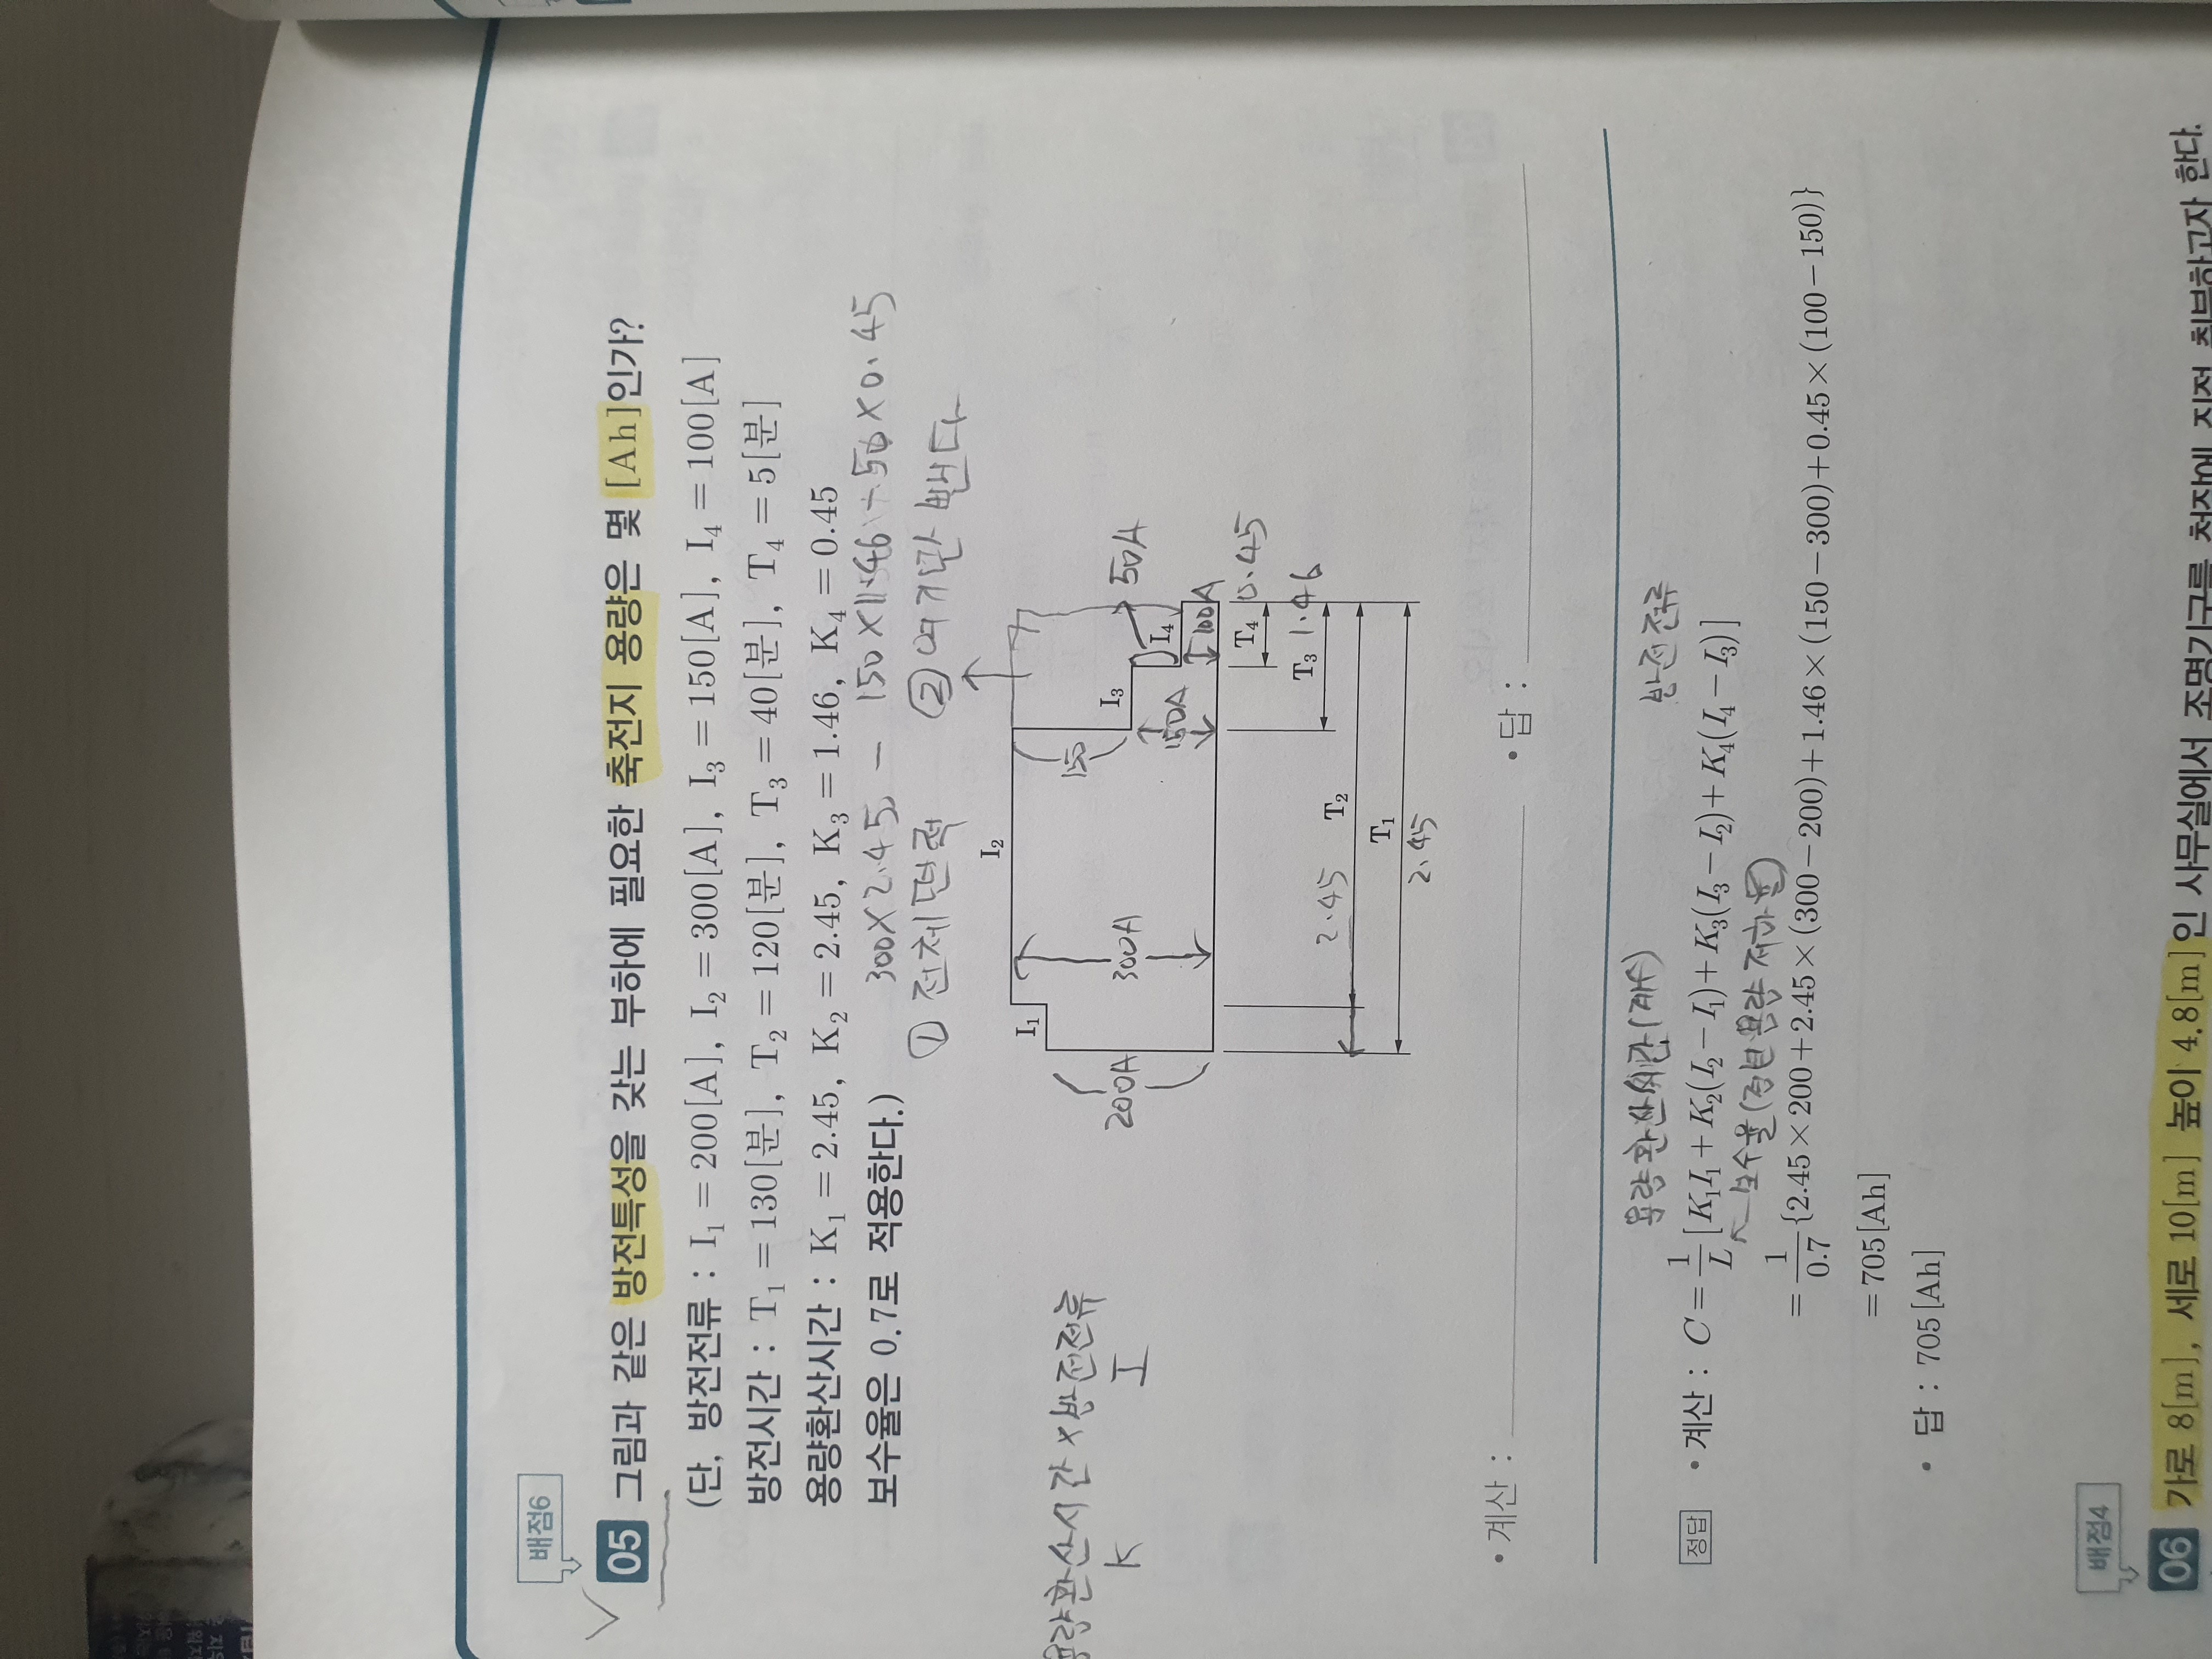 배점6
05 그림과 같은 방전특성을 갖는 부하에 필요한 축전지 용량은 몇 [Ah]인가?
(단, 방전전류 : I₁ = 200[A], I₂ = 300[A], I₃ = 150[A], I₄ = 100[A]
방전시간 : T₁ = 130[분], T₂ = 120[분], T₃ = 40[분], T₄ = 5[분]
용량환산시간 : K₁ = 2.45, K₂ = 2.45, K₃ = 1.46, K₄ = 0.45
보수율은 0.7로 적용한다.)
300×2.45 - 150×1.46 - 50×0.45
① 전체면적 ② 여기만 뺀다
용량환산시간 × 방전전류
K I
I₂
I₁
I₃
I₄
200A
300A
150
150A
50A
100A
T₄ 0.45
T₃ 1.46
2.45 T₂
T₁
2.45
• 계산 : • 답 :
용량환산시간(계수) 방전전류
정답 • 계산 : C = 1/L [K₁I₁ + K₂(I₂ - I₁) + K₃(I₃ - I₂) + K₄(I₄ - I₃)]
보수율(경년용량 저하율)
= 1/0.7 {2.45×200+2.45×(300-200)+1.46×(150-300)+0.45×(100-150)}
= 705[Ah]
• 답 : 705[Ah]
배점4
06 가로 8[m], 세로 10[m] 높이 4.8[m]인 사무실에서 조명기구를 천장에 직접 취부하고자 한다.